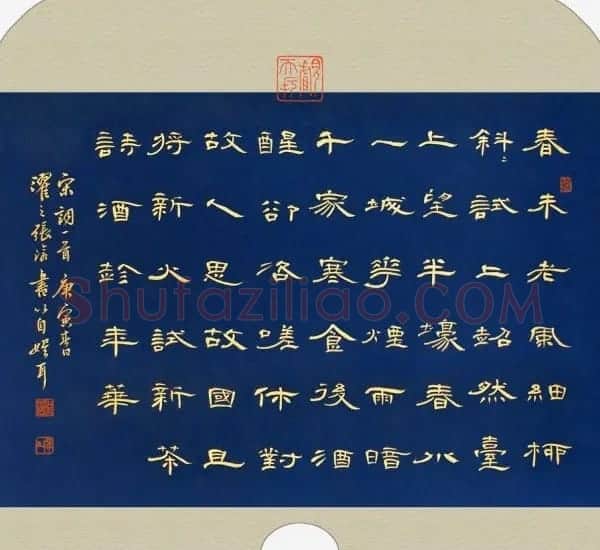 春未老風細柳
斜=試上超然臺
上望半壕春水
一城華煙雨暗
千家寒食後酒
醒卻咨嗟休對
故人思故國且
將新火試新茶
詩酒趁年華
宋詞一首庚寅春
濯之張書以自娛耳
Shufaziliao.COM